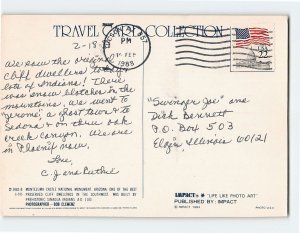 TRAVEL CARD COLLECTION
2-18
PM
FEB
1988
USA
22
We saw the original
cliff dwellers today
lots of Indians! There
was snow blotches in the
mountains, we went to
Jerome, a ghost town & to
Sedona & on thru Oak
creek canyon. We are
in Phoenix now.
Love,
C. J. and Ruthie
"Swinger Joe" and
Dick Bennett
P.O. Box 503
Elgin, Illinois 60121
MONTEZUMA CASTLE NATIONAL MONUMENT, ARIZONA ONE OF THE BEST
PRESERVED CLIFF DWELLINGS IN THE SOUTHWEST WAS BUILT BY
PREHISTORIC SINAGUA INDIANS, A.D. 1100
PHOTOGRAPHER - BOB CLEMENZ
IMPACT "LIFE LIKE PHOTO ART"
PUBLISHED BY: IMPACT